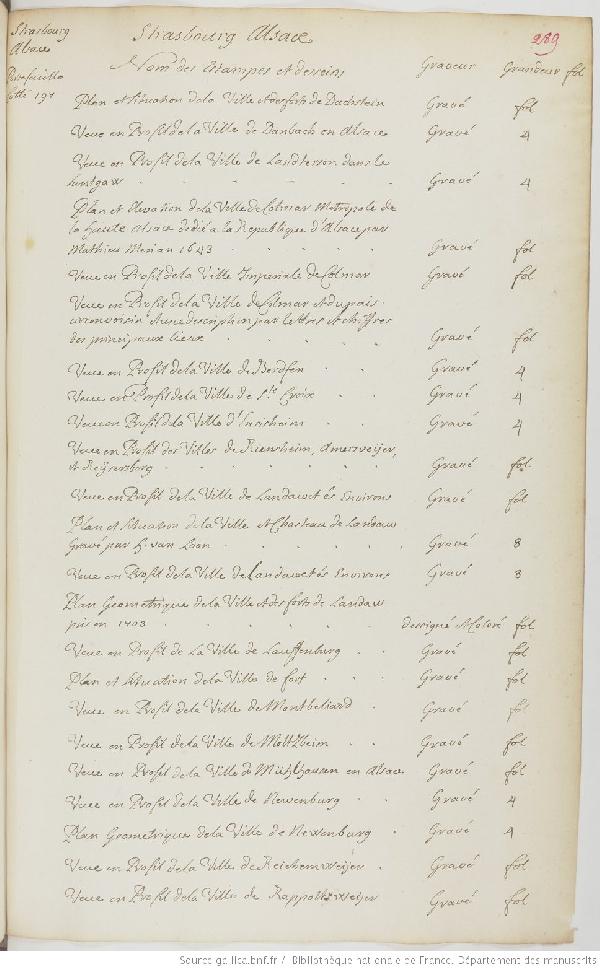 Strasbourg
Alsace
Strasbourg Alsace
289
Nom des estampes et desseins Graveur Grandeur fol
Plan et situation de la Ville et des forts de Dachstein Gravé fol
Veue en Profil de la Ville de Danbach en Alsace Gravé 4
Veue en Profil de la Ville de Landtseron dans le
suntgaw Gravé 4
Plan et Elevation de la Ville de Colmar Metropole de
la haute Alsace dedié a la Republique d'Alsace par
Mathieu Merian 1643 Gravé fol
Veue en Profil de la Ville Imperiale de Colmar Gravé fol
Veue en Profil de la Ville de Colmar et du païs
circonvoisin et une description par lettres et chiffres
des principaux lieux Gravé fol
Veue en Profil de la Ville de Gravé 4
Veue en Profil de la Ville de Ste Croix Gravé 4
Veue en Profil de la Ville d'Ensisheim Gravé 4
Veue en Profil des Villes de Kiensheim, Amerweijer,
et Keijsersberg Gravé fol
Veue en Profil de la Ville de Landaw et és Environs Gravé fol
Plan et situation de la Ville et Chasteau de Landaw
Gravé par H. van Loon Gravé 8
Veue en Profil de la Ville de Landaw et és Environs Gravé 8
Plan Geometrique de la Ville et des forts de Landaw
pris en 1703 dessigné et Coloré fol
Veue en Profil de la Ville de Lauffenburg Gravé fol
Plan et situation de la Ville de fort Gravé fol
Veue en Profil de la Ville de Montbeliard Gravé fol
Veue en Profil de la Ville de Moltzheim Gravé fol
Veue en Profil de la Ville de Mühlhausen en Alsace Gravé fol
Veue en Profil de la Ville de Newenburg Gravé 4
Plan Geometrique de la Ville de Newenburg Gravé 4
Veue en Profil de la Ville de Reichenweijer Gravé fol
Veue en Profil de la Ville de Rappoltsweijer Gravé fol
Source gallica.bnf.fr / Bibliothèque nationale de France. Département des manuscrits